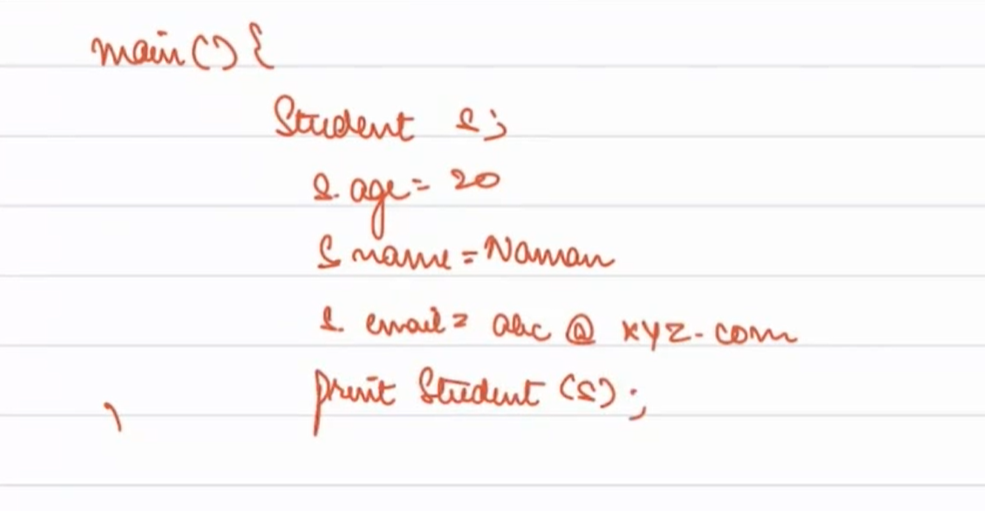 main() {
Student s;
s. age = 20
s name = Naman
s. email = abc @ xyz.com
print Student (s);
}